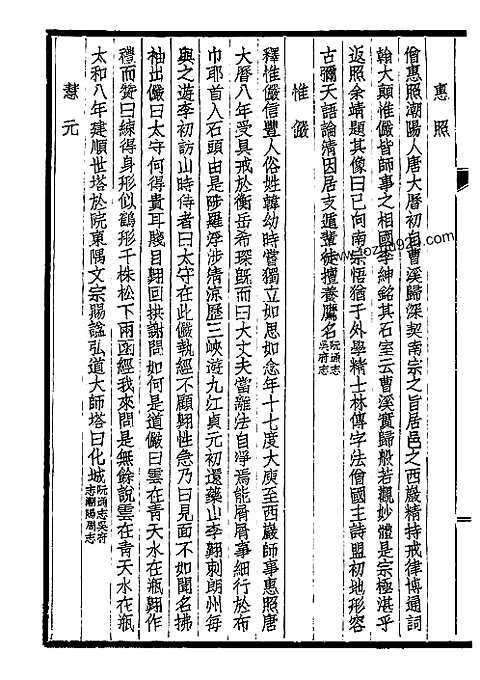 惠照
僧惠照潮陽人唐大曆初自曹溪歸深契南宗之旨居邑之西巖精持戒律博通詞
翰大顛惟儼皆師事之相國李紳銘其石室云曹溪實歸般若觀妙體是宗極湛乎
返照余靖題其像曰已向南宗悟猶于外學精士林傳字法僧國主詩盟初地形容
古彌天語論清因居支遁輩徒擅養鷹名阮通志吳府志
惟儼
釋惟儼信豐人俗姓韓幼時嘗獨立如思如念年十七度大庾至西巖師事惠照唐
大曆八年受具戒於衡岳希琛既而曰大丈夫當離法自淨焉能屑屑事細行於布
巾耶首入石頭由是陟羅浮涉清涼歷三峽遊九江貞元初還藥山李翱刺朗州每
與之遊李初訪山時侍者曰太守在此儼執經不顧翱性急乃曰見面不如聞名拂
袖出儼曰太守何得貴耳賤目翱回拱謝問如何是道儼曰雲在青天水在瓶翱作
禮而贊曰練得身形似鶴形千株松下兩函經我來問是無餘說雲在青天水在瓶
太和八年建順世塔於院東隅文宗賜謚弘道大師塔曰化城阮通志吳府志潮陽周志
慧元